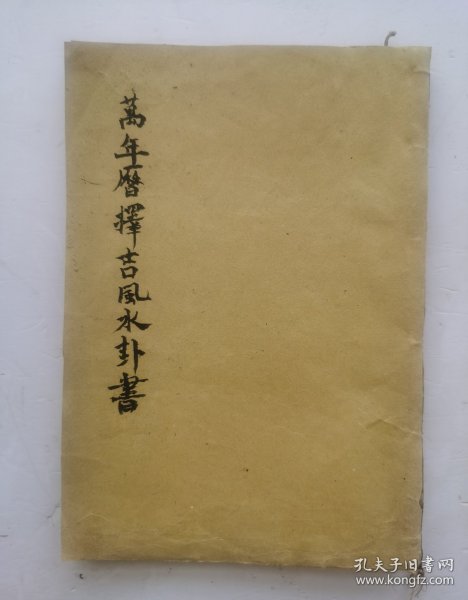 萬年曆擇吉風水卦書
孔夫子旧书网
www.kongfz.com